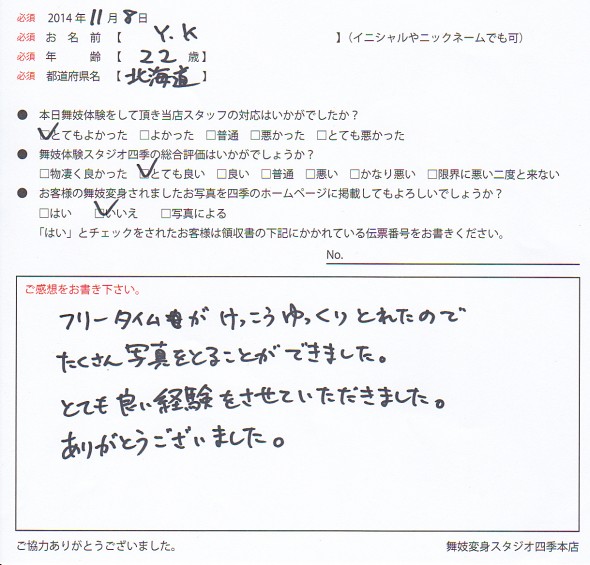 必須 2014年11月8日
必須 お名前【 Y.K 】(イニシャルやニックネームでも可)
必須 年齢【 22歳】
必須 都道府県名【北海道】
● 本日舞妓体験をして頂き当店スタッフの対応はいかがでしたか?
☑とてもよかった □よかった □普通 □悪かった □とても悪かった
● 舞妓体験スタジオ四季の総合評価はいかがでしょうか?
□物凄く良かった ☑とても良い □良い □普通 □悪い □かなり悪い □限界に悪い二度と来ない
● お客様の舞妓変身されましたお写真を四季のホームページに掲載してもよろしいでしょうか?
□はい ☑いいえ □写真による
「はい」とチェックをされたお客様は領収書の下記にかかれている伝票番号をお書きください。
No.
ご感想をお書き下さい。
フリータイムがけっこうゆっくりとれたので
たくさん写真をとることができました。
とても良い経験をさせていただきました。
ありがとうございました。
ご協力ありがとうございました。 舞妓変身スタジオ四季本店